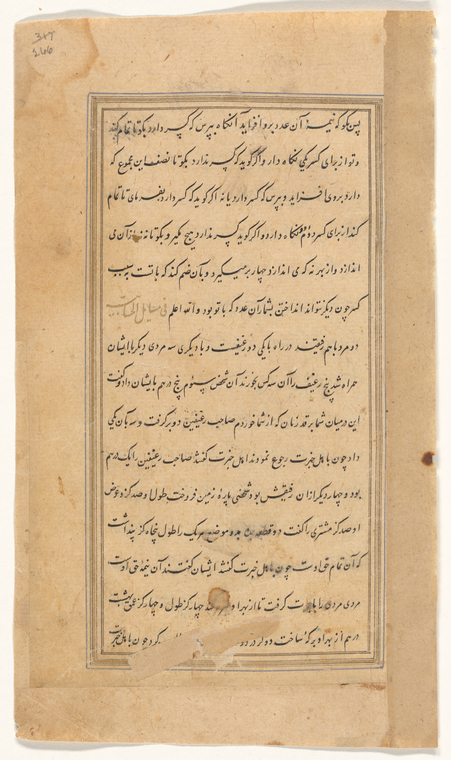 پس بگو که نیمهٔ آن عدد برو افزاید آنگاه بپرس که کسر دارد بگو تا تمام کند
و تو از برای کسر یکی نگاه دار و اگر گوید که کسر ندارد بگو تا نصف این مجموع که
دارد بروی افزاید و بپرس که کسر دارد یا نه اگر گوید که کسر دارد بفرمای تا تمام
کند از برای کسر دوم نگاه دار دو و اگر گوید کسر ندارد هیچ مگیر و بگو تا نه نه از آن می
اندازد و از هر نه که می اندازد چهار بر میگیرد و بآن ضم کند که باتت بسبب
کسر چون دیگر نتواند انداختن بشمار آن عدد که با تو بود و الله اعلم فی مسایل
دو مرد با هم رفیقند در راه با یکی دو رغیفت و با دیگری سه مردی دیگر با ایشان
همراه شد پنج رغیف را آن سه کس بخوردند آن شخص سیوم پنج درهم بایشان داد و گفت
این درمیان شما بر قدر نان که از شما خوردم صاحب رغیفین دو بر گرفت و سه بآن یکی
داد چون باهل خبرت رجوع نمودند اهل خبرت گفتند صاحب رغیفین را یک درهم
بود و چهار دیگر از ان رفیقش بود شخصی پارهٔ زمین فروخت طول او صد گز و عرض
او صد گز مشتری را گفت دو قطعه بده دو موضع هر یک را طول پنجاه گز پنداشت
که آن تمام حق اوست چون باهل خبرت گفتند ایشان گفتند آن نیمهٔ حق اوست
مردی مردی را باجرت گرفت تا از بهر او چهار گز طول و چهار گز عمق بهشت
درهم از بهر او بر گو ساخت دو در دو کرد چون باهل خبرت